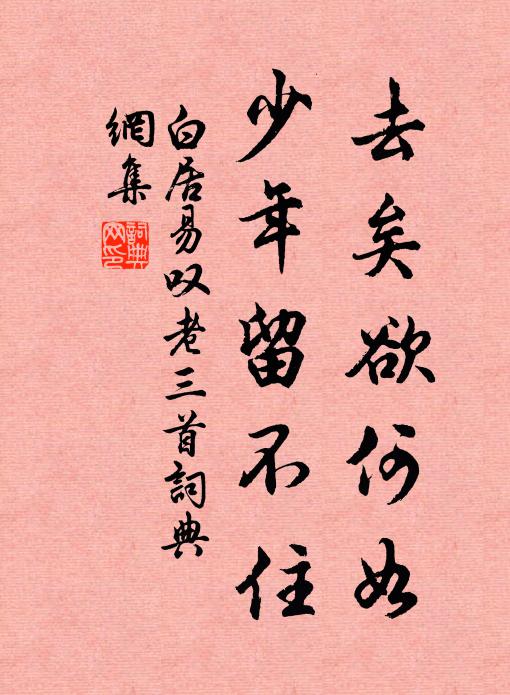 去矣欲何如
少年留不住
白居易叹老三首詞典
網集
詞典
网印